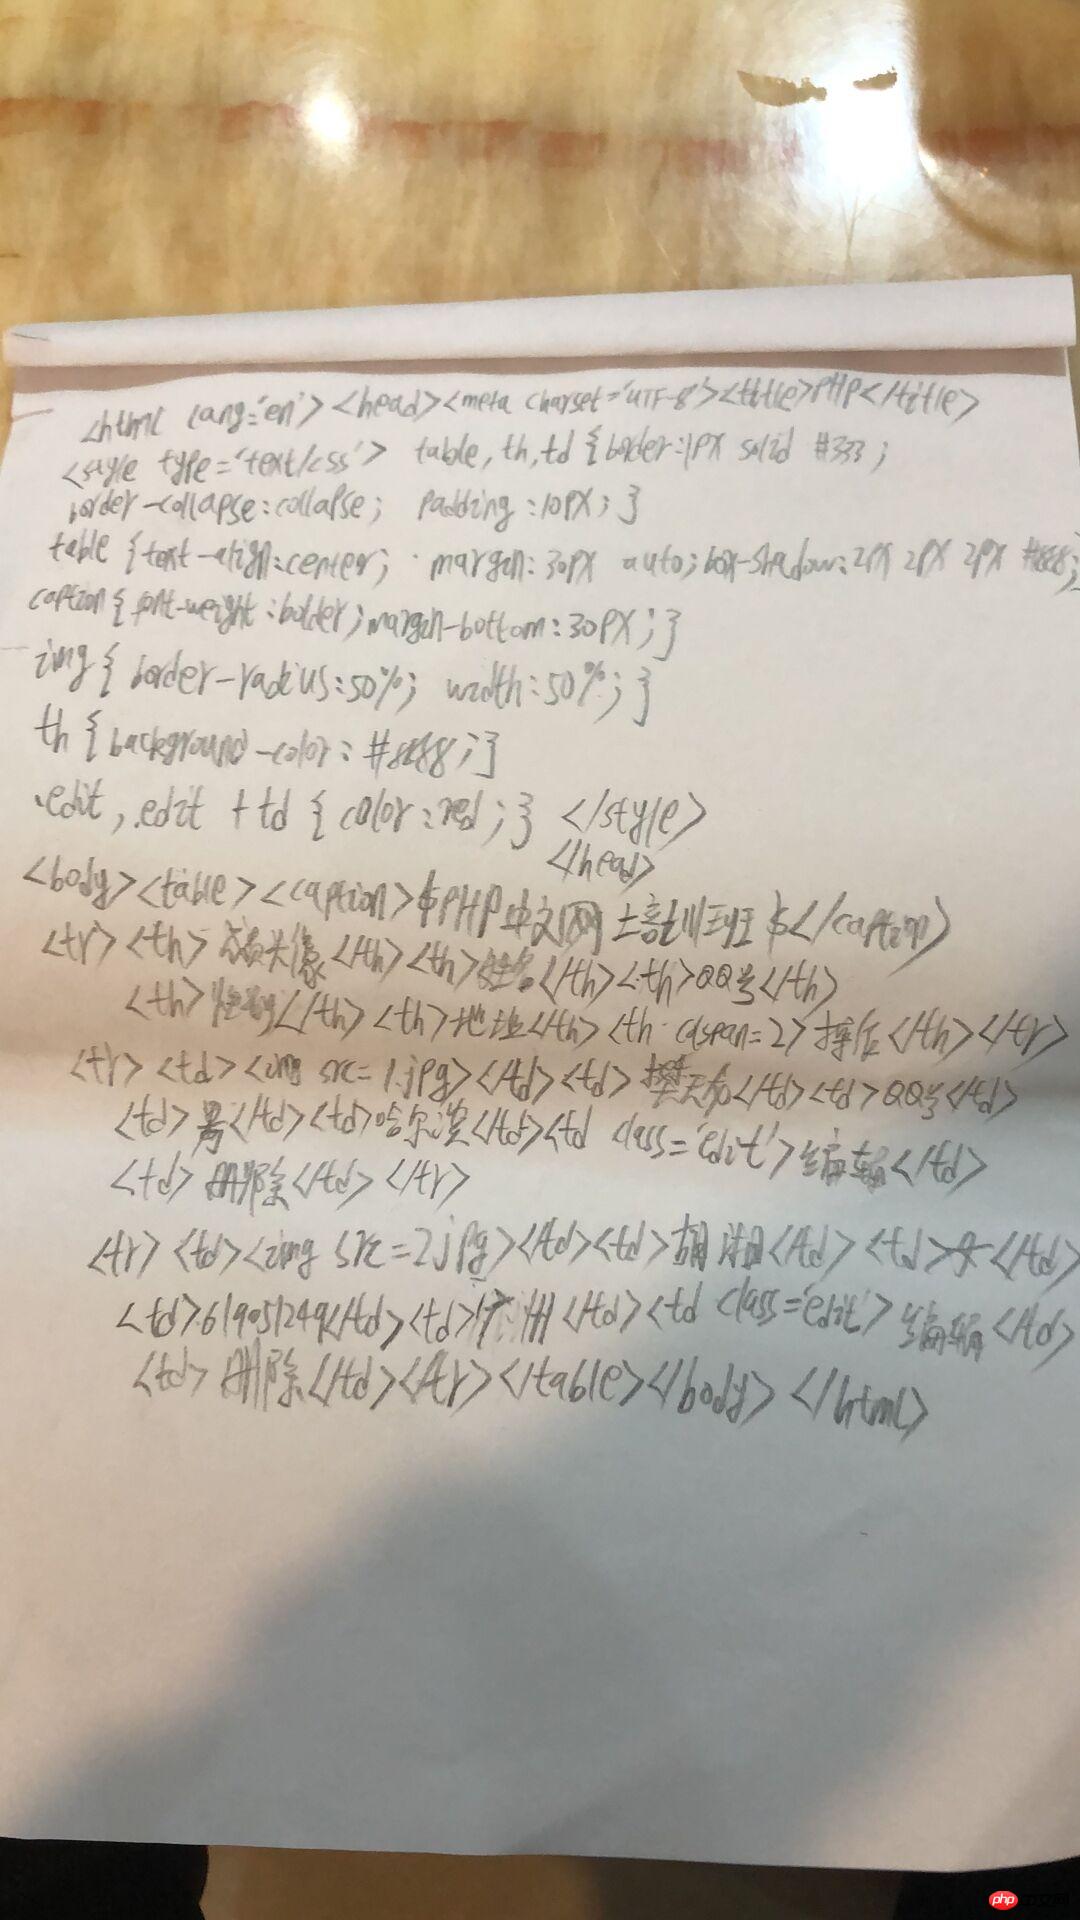 <html lang='en'><head><meta charset='UTF-8'><title>PHP</title>
<style type='text/css'> table, th, td {border:1px solid #333;
border-collapse:collapse; padding:10px;}
table {text-align:center; margin:30px auto; box-shadow:2px 2px 2px #888;
caption{font-weight:bolder; margin-bottom:30px;}
img{border-radius:50%; width:50%;}
th {background-color: #888;}
.edit, .edit + td {color:red;} </style>
</head>
<body><table><caption>$PHP中文网培训班$</caption>
<tr><th>头像</th><th>姓名</th><th>QQ号</th>
<th>性别</th><th>地址</th><th colspan=2>操作</th></tr>
<tr><td><img src=1.jpg></td><td></td><td>QQ号</td>
<td>男</td><td>哈尔滨</td><td class='edit'>编辑</td>
<td>删除</td></tr>
<tr><td><img src=2jpg></td><td>胡</td><td>女</td>
<td>619051249</td><td>广州</td><td class='edit'>编辑</td>
<td>删除</td></tr></table></body></html>
php